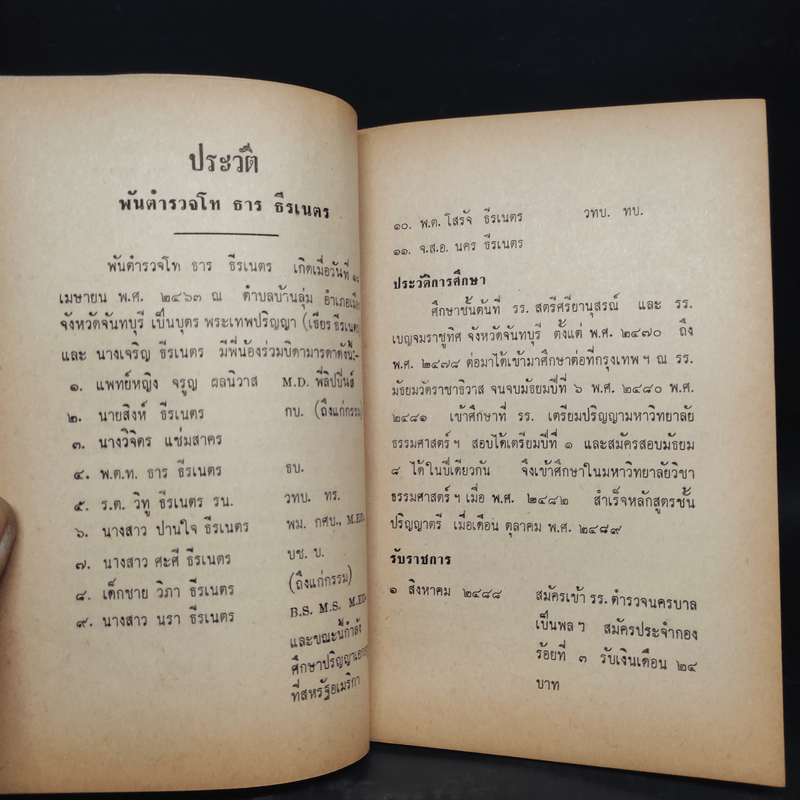 ประวัติ
พันตำรวจโท ธาร ธีรเนตร
พันตำรวจโท ธาร ธีรเนตร เกิดเมื่อวันที่
เมษายน พ.ศ. ๒๔๖๓ ณ ตำบลบ้านลุ่ม อำเภอเมือง
จังหวัดจันทบุรี เป็นบุตร พระเทพปริญญา (เธียร ธีรเนตร
และ นางเจริญ ธีรเนตร มีพี่น้องร่วมบิดามารดาดังนี้:-
๑. แพทย์หญิง จรูญ ผลนิวาส M.D. ฟิลิปปินส์
๒. นายสิงห์ ธีรเนตร กบ. (ถึงแก่กรรม)
๓. นางวิจิตร แช่มสาคร
๔. พ.ต.ท. ธาร ธีรเนตร ธบ.
๕. ร.ต. วิทู ธีรเนตร รน. วทบ. ทร.
๖. นางสาว ปานใจ ธีรเนตร พม. กศบ., M.ED.
๗. นางสาว ศะศี ธีรเนตร บช. บ.
๘. เด็กชาย วิภา ธีรเนตร (ถึงแก่กรรม)
๙. นางสาว นรา ธีรเนตร B.S. M.S. M.ED.
และขณะนี้กำลัง
ศึกษาปริญญาเอก
ที่สหรัฐอเมริกา
๑๐. พ.ต. โสรัจ ธีรเนตร วทบ. ทบ.
๑๑. จ.ส.อ. นคร ธีรเนตร
ประวัติการศึกษา
ศึกษาชั้นต้นที่ รร. สตรีศรียานุสรณ์ และ รร.
เบญจมราชูทิศ จังหวัดจันทบุรี ตั้งแต่ พ.ศ. ๒๔๗๐ ถึง
พ.ศ. ๒๔๗๘ ต่อมาได้เข้ามาศึกษาต่อที่กรุงเทพ ฯ ณ รร.
มัธยมวัดราชาธิวาส จนจบมัธยมปีที่ ๖ พ.ศ. ๒๔๘๐ พ.ศ.
๒๔๘๑ เข้าศึกษาที่ รร. เตรียมปริญญามหาวิทยาลัย
ธรรมศาสตร์ ฯ สอบได้เตรียมปีที่ ๑ และสมัครสอบมัธยม
๘ ได้ในปีเดียวกัน จึงเข้าศึกษาในมหาวิทยาลัยวิชา
ธรรมศาสตร์ ฯ เมื่อ พ.ศ. ๒๔๘๒ สำเร็จหลักสูตรชั้น
ปริญญาตรี เมื่อเดือน ตุลาคม พ.ศ. ๒๔๘๙
รับราชการ
๑ สิงหาคม ๒๔๘๘ สมัครเข้า รร. ตำรวจนครบาล
เป็นพล ฯ สมัครประจำกอง
ร้อยที่ ๓ รับเงินเดือน ๒๔
บาท